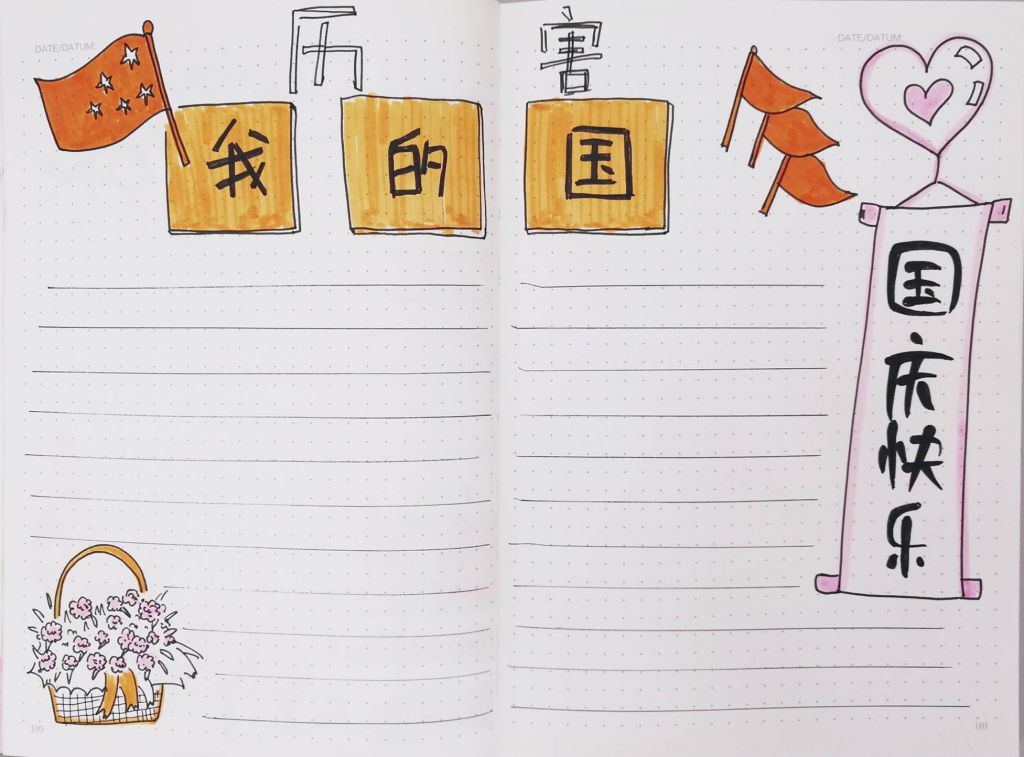 DATE/DATUM:
DATE/DATUM:
历害
我的国
国庆快乐
100
101